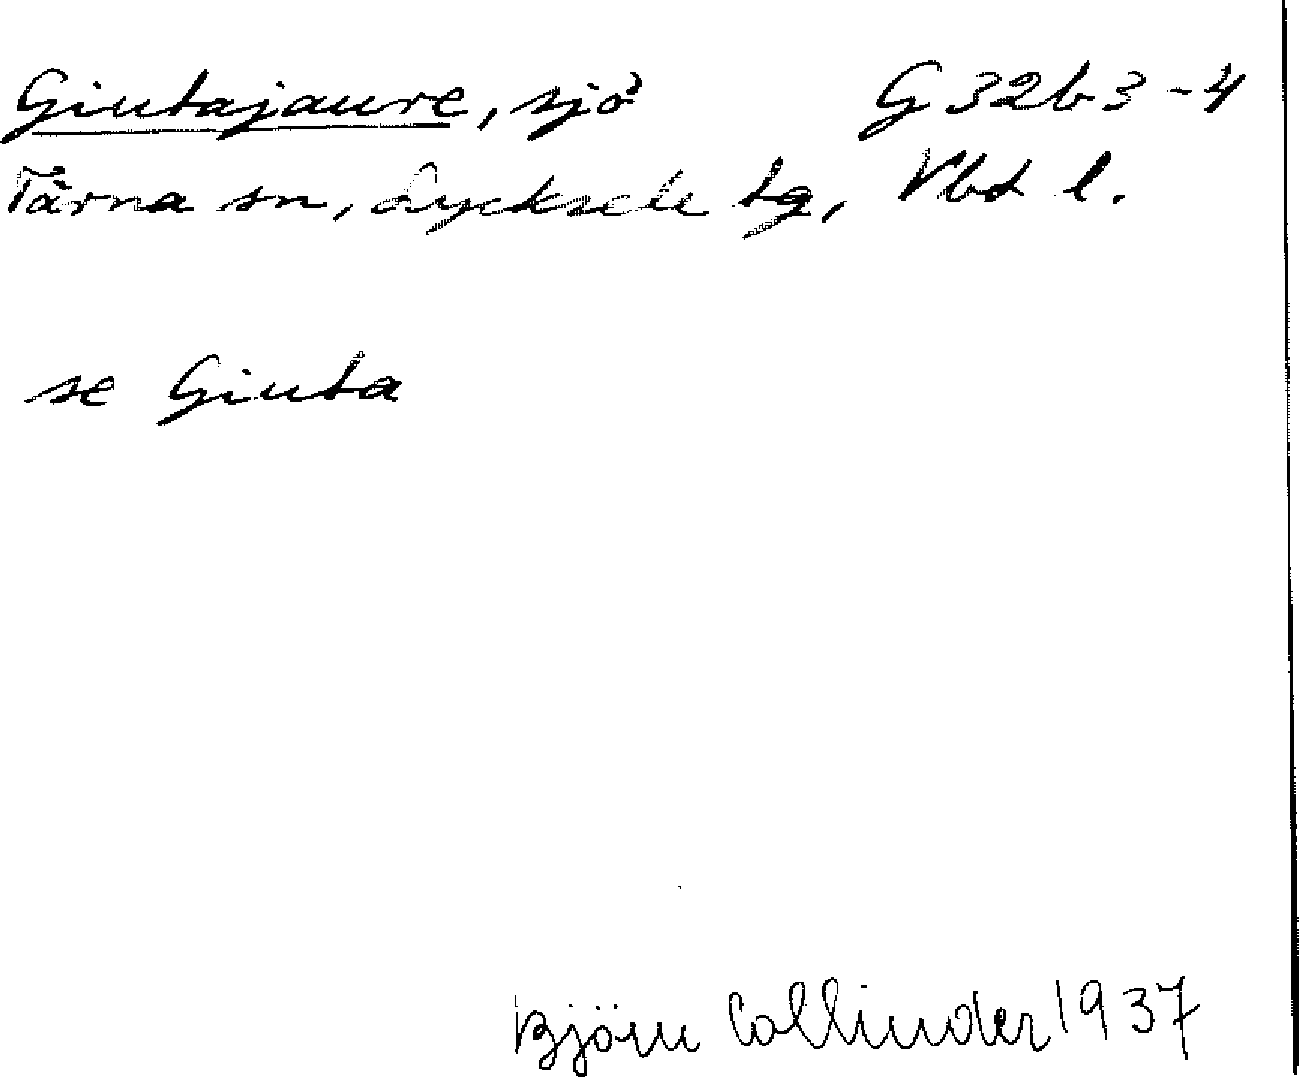 Giutajaure, sjö G 32 b 3-4
Tärna sn, Lycksele lg, Vbd l.
se Giuta
Björn Collinder 1937